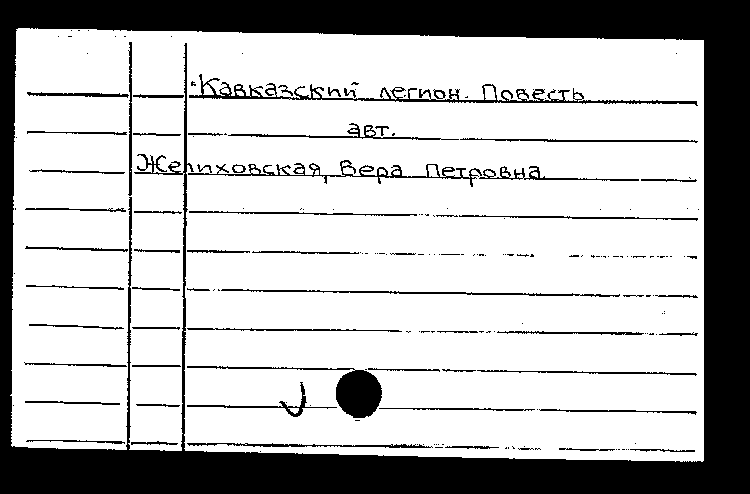 Кавказский легион. Повесть
авт.
Желиховская, Вера Петровна